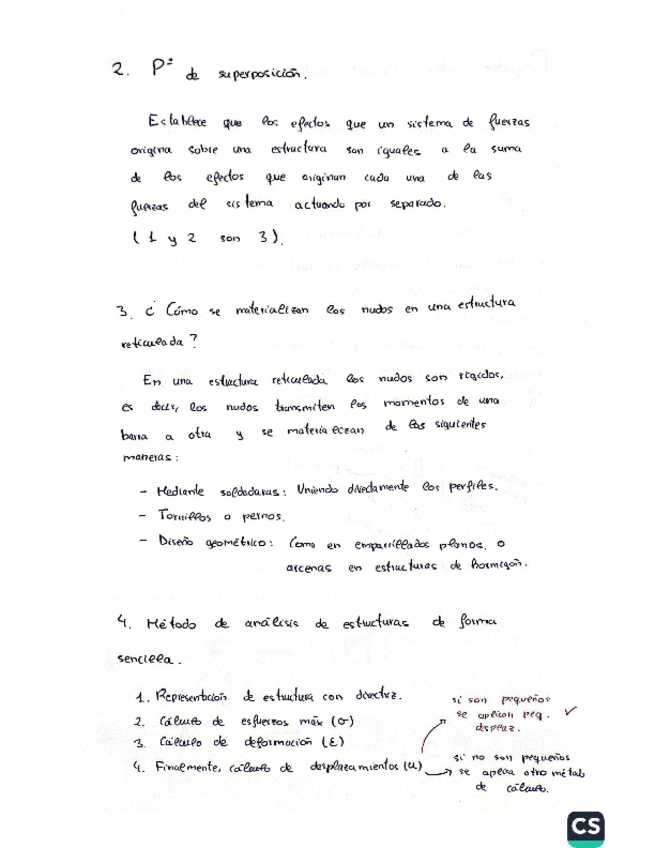 2. Pº de superposición.
Establece que los efectos que un sistema de fuerzas
origina sobre una estructura son iguales a la suma
de los efectos que originan cada una de las
fuerzas del sistema actuando por separado.
(1 y 2 son 3).
3. ¿Cómo se materializan los nudos en una estructura
reticulada?
En una estructura reticulada los nudos son rígidos,
es decir, los nudos transmiten los momentos de una
barra a otra y se materializan de las siguientes
maneras:
- Mediante soldaduras: Uniendo directamente los perfiles.
- Tornillos o pernos.
- Diseño geométrico: Como en emparrillados planos, o
arcenas en estructuras de hormigón.
4. Método de análisis de estructuras de forma
sencilla.
1. Representación de estructura con directriz.
2. Cálculo de esfuerzos máx (σ)
3. Cálculo de deformación (ε)
4. Finalmente, cálculo de desplazamientos (u)
si son pequeños
se aplican peq. ✓
desplaz.
si no son pequeños
se aplica otro métod
de cálculo.
CS